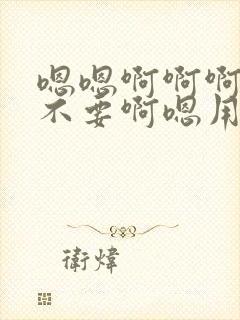 嗯嗯啊啊啊
不要啊嗯用
衛煒